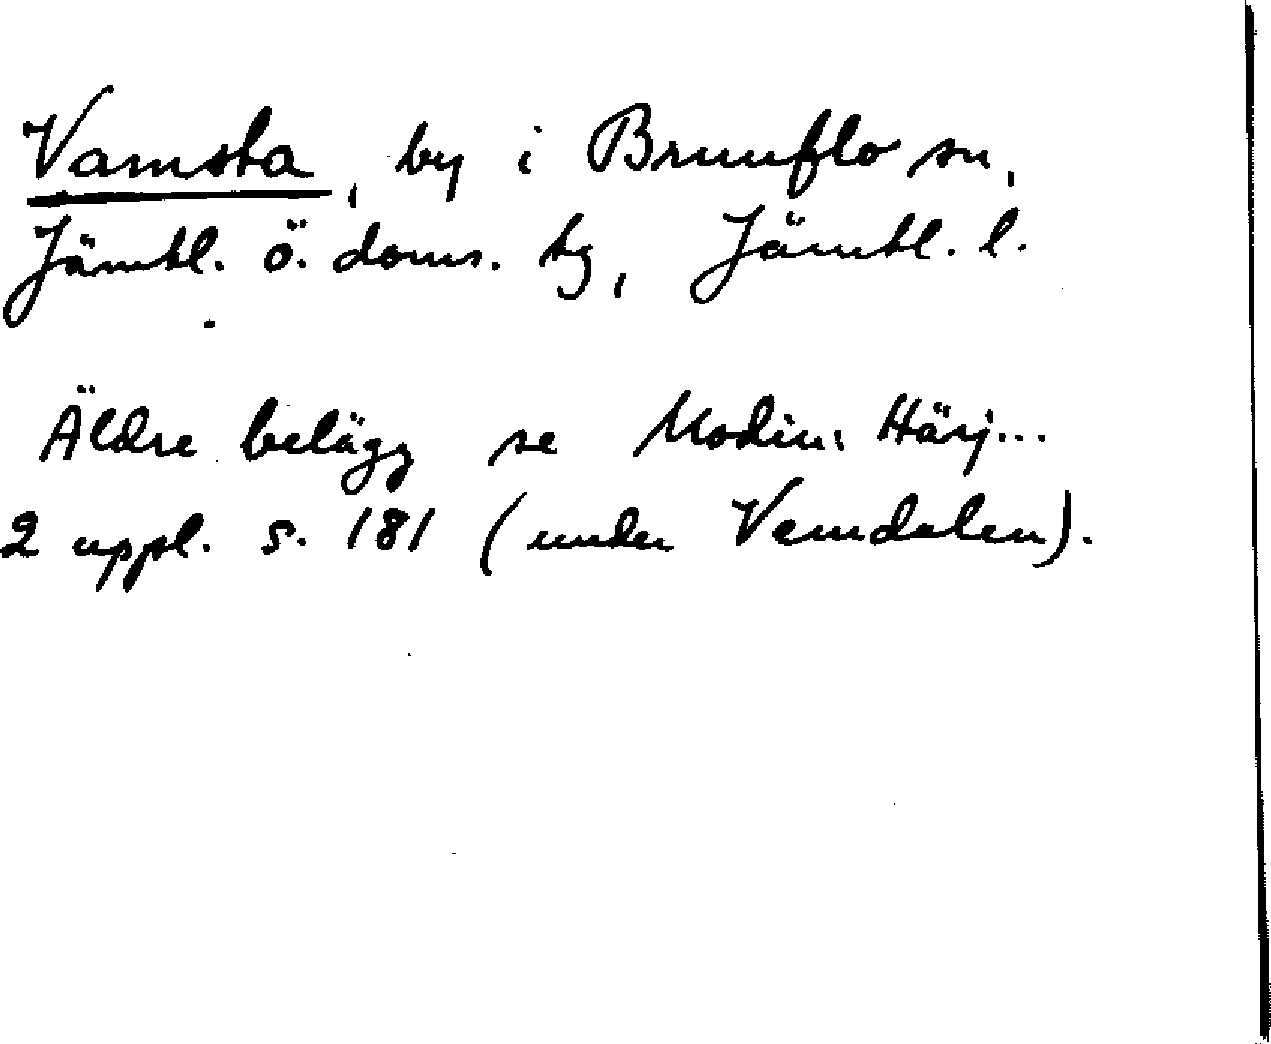 Vamsta, by i Brunflo sn,
Jämtl. ö. doms. tg, Jämtl. l.
Äldre belägg se Modin, Härj...
2 uppl. s. 181 (under Vemdalen).